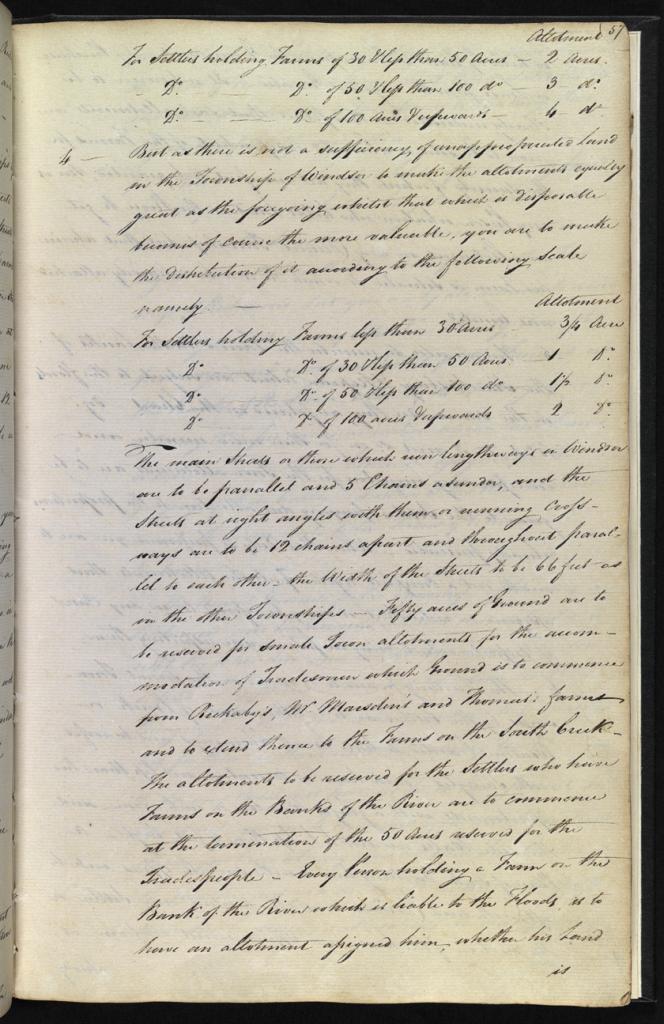 57
Allotment
For Settlers holding Farms of 30 & less than 50 Acres — 2 Acres.
Do. Do. of 50 & less than 100 do — 3 do.
Do. — Do. of 100 Acres & upwards — 4 do
4 — But as there is not a sufficiency of unappropriated Land
in the Township of Windsor to make the allotments equally
great as the foregoing, whilst that which is disposable
becomes of course the more valuable, you are to make
the distribution of it according to the following scale
namely —
Allotment
For Settlers holding Farms less than 30 Acres 3/4 Acre
Do. Do. of 30 & less than 50 Acres. 1 Do.
Do. Do. of 50 & less than 100 do. 1 1/2 Do.
Do. Do. of 100 acres & upwards 2 Do.
The main Streets or those which run lengthways in Windsor
are to be parallel and 5 Chains asunder, and the
Streets at right angles with them or running cross-
ways are to be 12 chains apart and throughout paral-
lel to each other — the Width of the Streets to be 66 feet as
in the other Townships — Fifty acres of Ground are to
be reserved for small Town allotments for the accom-
modation of Tradesmen which Ground is to commence
from Rickaby's, Mr. Marsden's and Thomas's farms
and to extend thence to the Farms on the South Creek —
The allotments to be reserved for the Settlers who have
Farms on the Banks of the River are to commence
at the termination of the 50 Acres reserved for the
Tradespeople — Every Person holding a Farm on the
Bank of the River which is liable to the Floods is to
have an allotment assigned him, whether his Land
is